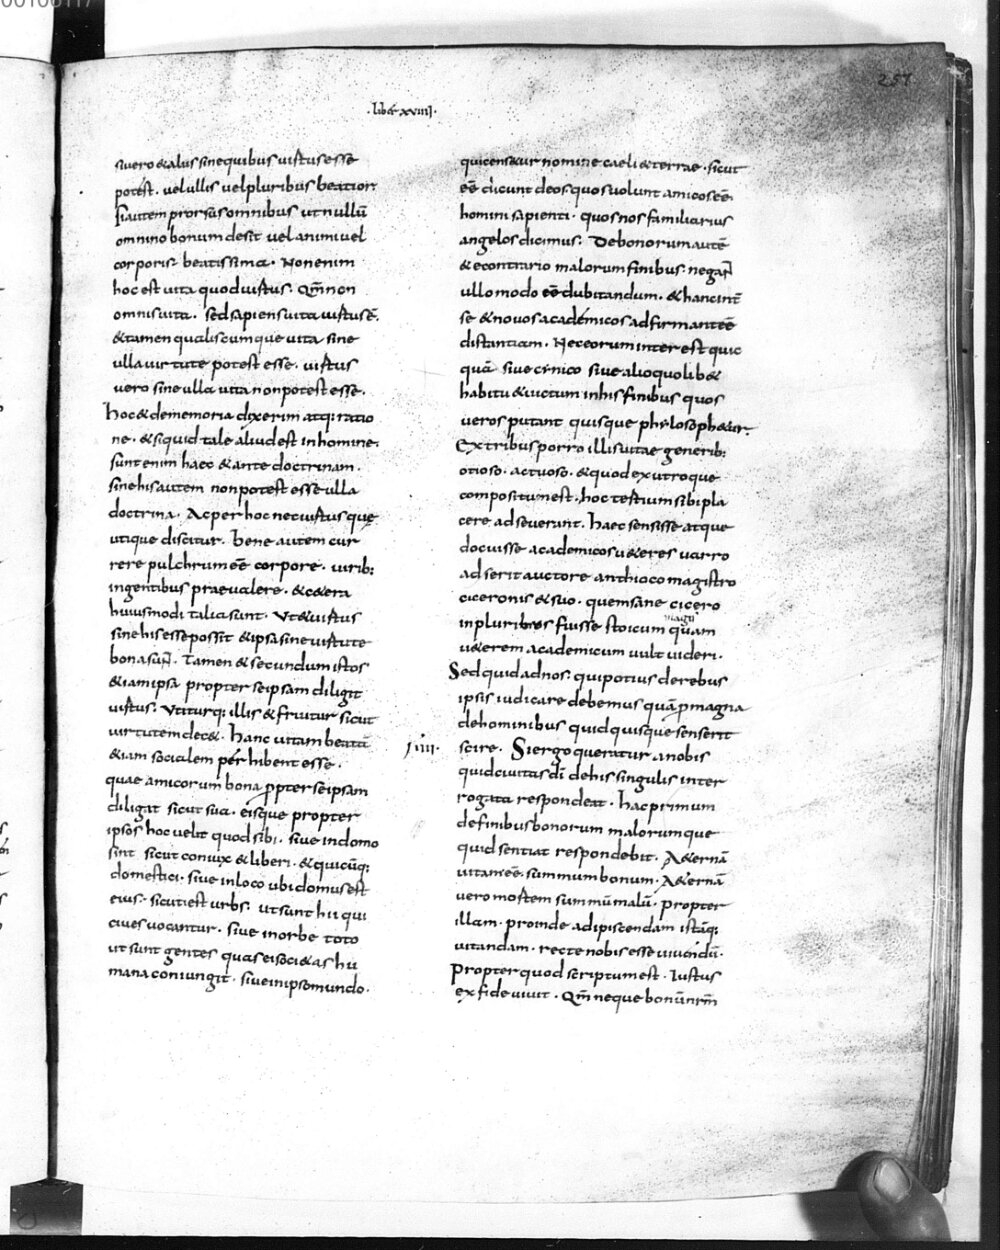 257
· liber xviiii ·
si vero & aliis sine quibus uirtus esse
potest · uel ullis uel pluribus beatior
Si autem prorsus omnibus ut nullū
omnino bonum desit uel animi uel
corporis · beatissima · Non enim
hoc est uita quod uirtus · Qm̄ non
omnis uita · sed sapiens uita uirtus ē ·
& tamen qualiscumque uita sine
ulla uirtute potest esse · uirtus
uero sine ulla uita non potest esse ·
hoc & de memoria dixerim atq: ratio
ne · & si quid tale aliud est in homine ·
sunt enim haec & ante doctrinam ·
sine his autem non potest esse ulla
doctrina · Ac per hoc nec uirtus quę
utique discitur · bene autem cur
rere pulchrum eē corpore · uirib:
ingentibus praeualere · & cetera
huiusmodi talia sunt · Ut & uirtus
sine his esse possit & ipsa sine uirtute
bona sunt̄ · Tamen & secundum istos
& iam ipsa propter se ipsam diligit
uirtus · Utiturq: illis & fruitur sicut
uirtutem dec& · hanc uitam beatā
& iam socialem perhibent esse ·
quae amicorum bona ꝓpter se ipsam
diligat sicut sua · eisque propter
ipsos hoc uelit quod sibi · siue in domo
sint sicut coniux & liberi · & quicūq:
domestici · siue in loco ubi domus est
eius · sicuti est urbs · ut sunt hii qui
ciues uocantur · siue in orbe toto
ut sunt gentes quas ei soci&as hu
mana coniungit · siue in ipso mundo ·
qui cens&ur nomine caeli & terrae · sicut
eē dicunt deos quos uolunt amicos eē
homini sapienti · quos nos familiarius
angelos dicimus · De bonorum autē
& e contrario malorum finibus · negan̄t
ullo modo eē dubitandum · & hanc int̄
se & nouos academicos adfirmant eē
distantiam · Nec eorum interest quic
quā siue cinico siue alio quolib&
habitu & uictum in his finibus quos
ueros putant quisque philosoph&ur ·
Ex tribus porro illis uitae generib:
otioso · actuoso · & quod ex utroque
compositum est · hoc tertium sibi pla
cere adseuerant · haec sensisse atque
docuisse academicos u&eres uarro
adserit auctore anthioco magistro
ciceronis & suo · quem sane cicero
in pluribus fuisse stoicum magis quam
u&erem academicum uult uideri ·
Sed quid ad nos · qui potius de rebus
ipsis iudicare debemus quā ꝓ magna
de hominibus quid quisque senserit
iiii · scire · Si ergo queratur a nobis
quid ciuitas dī de his singulis inter
rogata respondeat · hac primum
de finibus bonorum malorumque
quid sentiat respondebit · A&ernā
uitam eē summum bonum · A&ernā
uero mortem summū malū · propter
illam · proinde adipiscendam istāq:
uitandam · recte nobis esse uiuendū ·
Propter quod scriptum est · Iustus
ex fide uiuit · Qm̄ neque bonū nr̄m